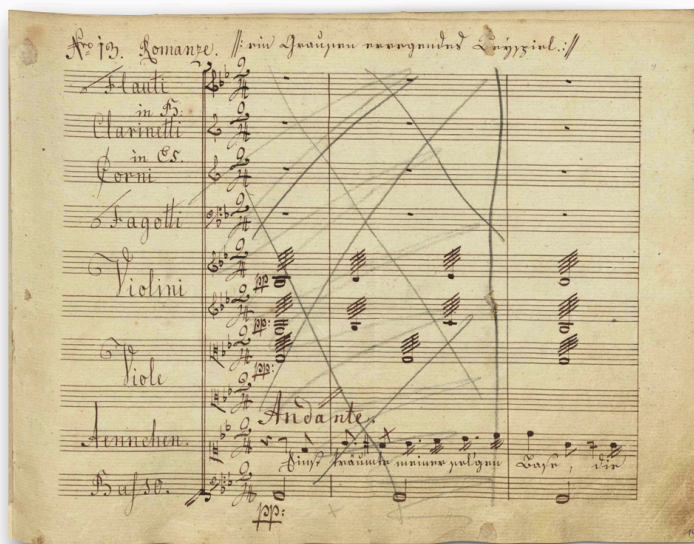 Nro 13. Romanze. //: ein Grausen erregendes Beyspiel. ://
Flauti
in B:
Clarinetti
in Es.
Corni
Fagotti
Violini
pp
pp:
Viole
pp:
Andante.
Aennchen.
Einst träumte meiner sel'gen Base, die
Basso.
pp: